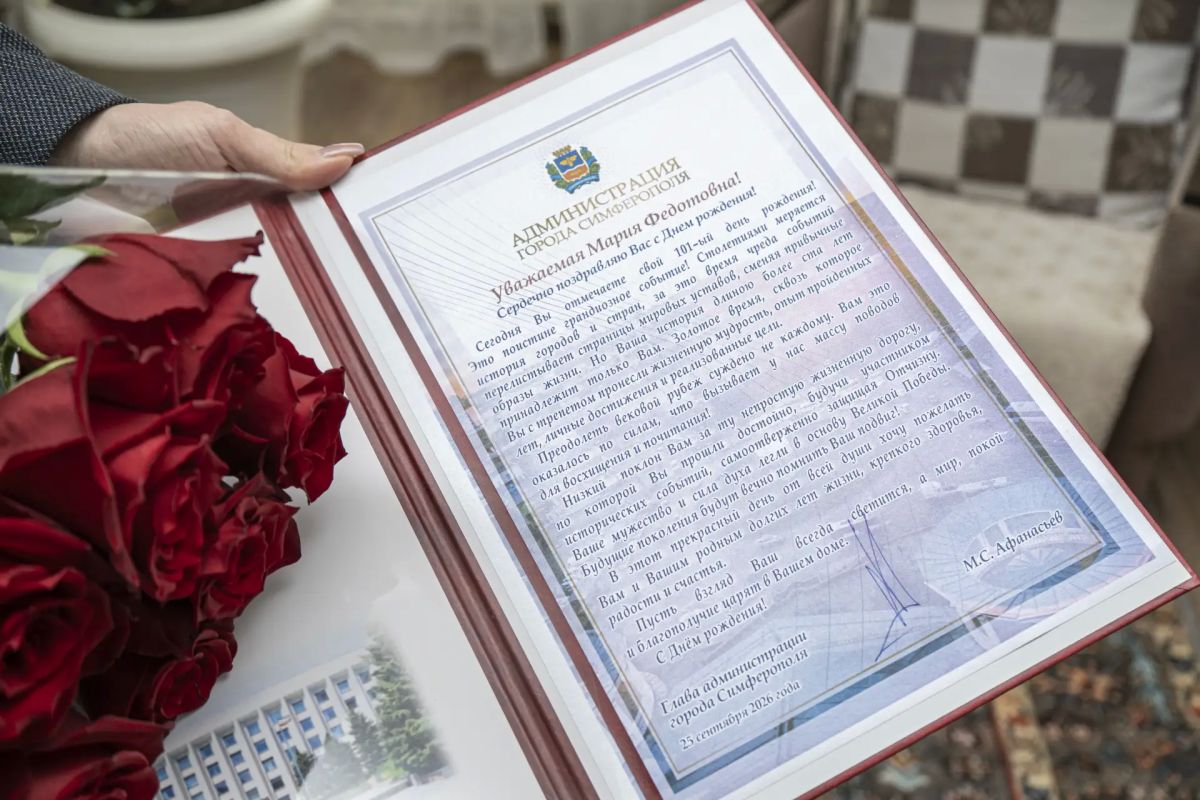 АДМИНИСТРАЦИЯ
ГОРОДА СИМФЕРОПОЛЯ
Уважаемая Мария Федотовна!
Сердечно поздравляю Вас с Днем рождения!
Сегодня Вы отмечаете свой 101-ый день рождения!
Это поистине грандиозное событие! Столетиями меряется
история городов и стран, за это время чреда событий
перелистывает страницы мировых уставов, сменяя привычные
образы жизни. Но Ваша история длиною более ста лет
принадлежит только Вам. Золотое время, сквозь которое
Вы с трепетом пронесли жизненную мудрость, опыт пройденных
лет, личные достижения и реализованные цели.
Преодолеть вековой рубеж суждено не каждому. Вам это
оказалось по силам, что вызывает у нас массу поводов
для восхищения и почитания!
Низкий поклон Вам за ту непростую жизненную дорогу,
по которой Вы прошли достойно, будучи участником
исторических событий, самоотверженно защищая Отчизну.
Ваше мужество и сила духа легли в основу Великой Победы.
Будущие поколения будут вечно помнить Ваш подвиг!
В этот прекрасный день от всей души хочу пожелать
Вам и Вашим родным долгих лет жизни, крепкого здоровья,
радости и счастья.
Пусть взгляд Ваш всегда светится, а мир, покой
и благополучие царят в Вашем доме.
С Днём рождения!
Глава администрации
города Симферополя
М.С. Афанасьев
25 сентября 2026 года